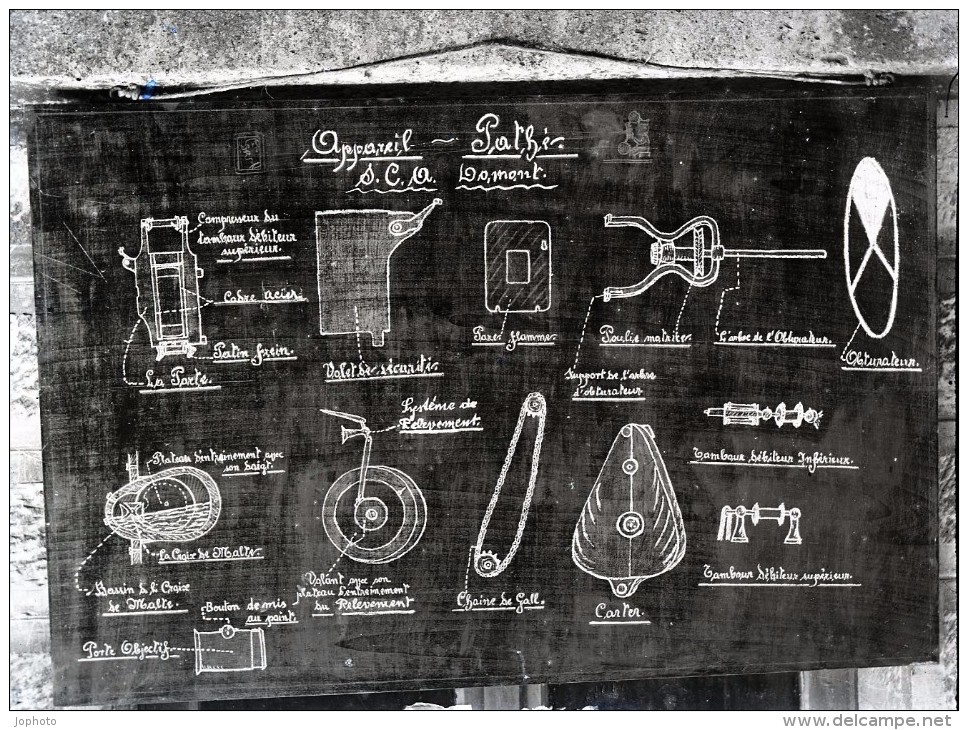 Appareil ~ Pathé
S.C.A. Domont.
Compresseur du
tambour débiteur
supérieur.
Cadre acier
Patin frein.
La Porte.
Volet de sécurité
Pare flamme
Poulie matrice
L'arbre de l'Obturateur.
Support de l'arbre
d'obturateur
Obturateur.
Système de
Relevement.
Plateau d'entrainement avec
son doigt.
La Croix de Malte.
Bassin de la Croix
de Malte.
Volant avec son
plateau d'entrainement
du Relevement
Chaine de Gall.
Carter.
Tambour débiteur Inférieur.
Tambour débiteur supérieur.
Bouton de mis
au point.
Porte Objectif
Jophoto
www.delcampe.net